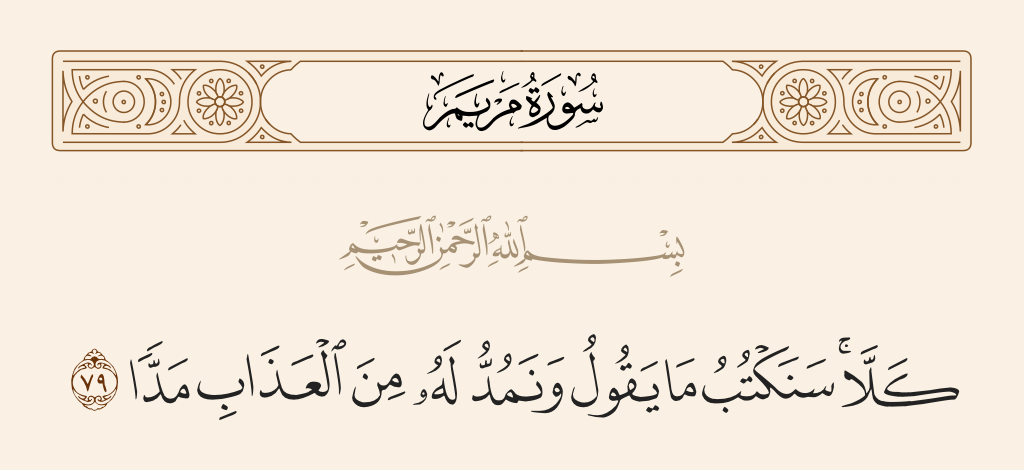 سُورَةُ مَرْيَمَ
بِسْمِ ٱللَّهِ ٱلرَّحْمَٰنِ ٱلرَّحِيمِ
كَلَّا ۚ سَنَكْتُبُ مَا يَقُولُ وَنَمُدُّ لَهُۥ مِنَ ٱلْعَذَابِ مَدًّا ٧٩